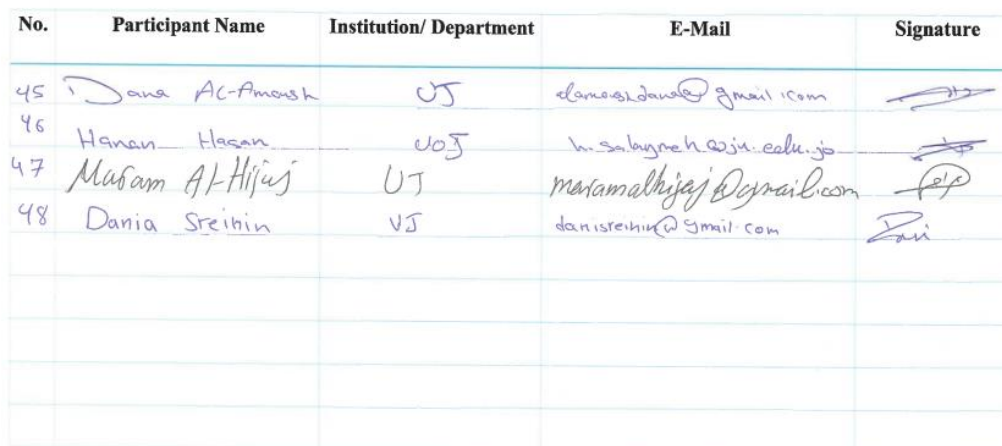 No. Participant Name Institution/ Department E-Mail Signature
45 Dana Al-Amoush UJ damoushdana@gmail.com
46 Hanan Hasan UOJ h.salaymeh@ju.edu.jo
47 Maram Al-Hijaj UJ maramalhijaj@gmail.com
48 Dania Sreihin UJ danisreihin@gmail.com